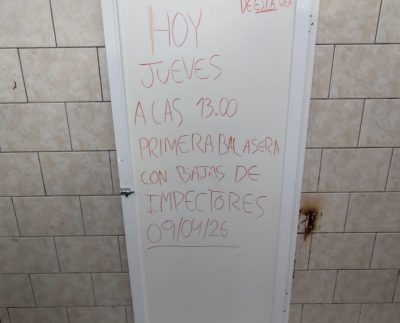 DE ESTA
HOY
JUEVES
A LAS 13:00
PRIMERA BALASERA
CON BAJAS DE
IMPECTORES
09/04/26